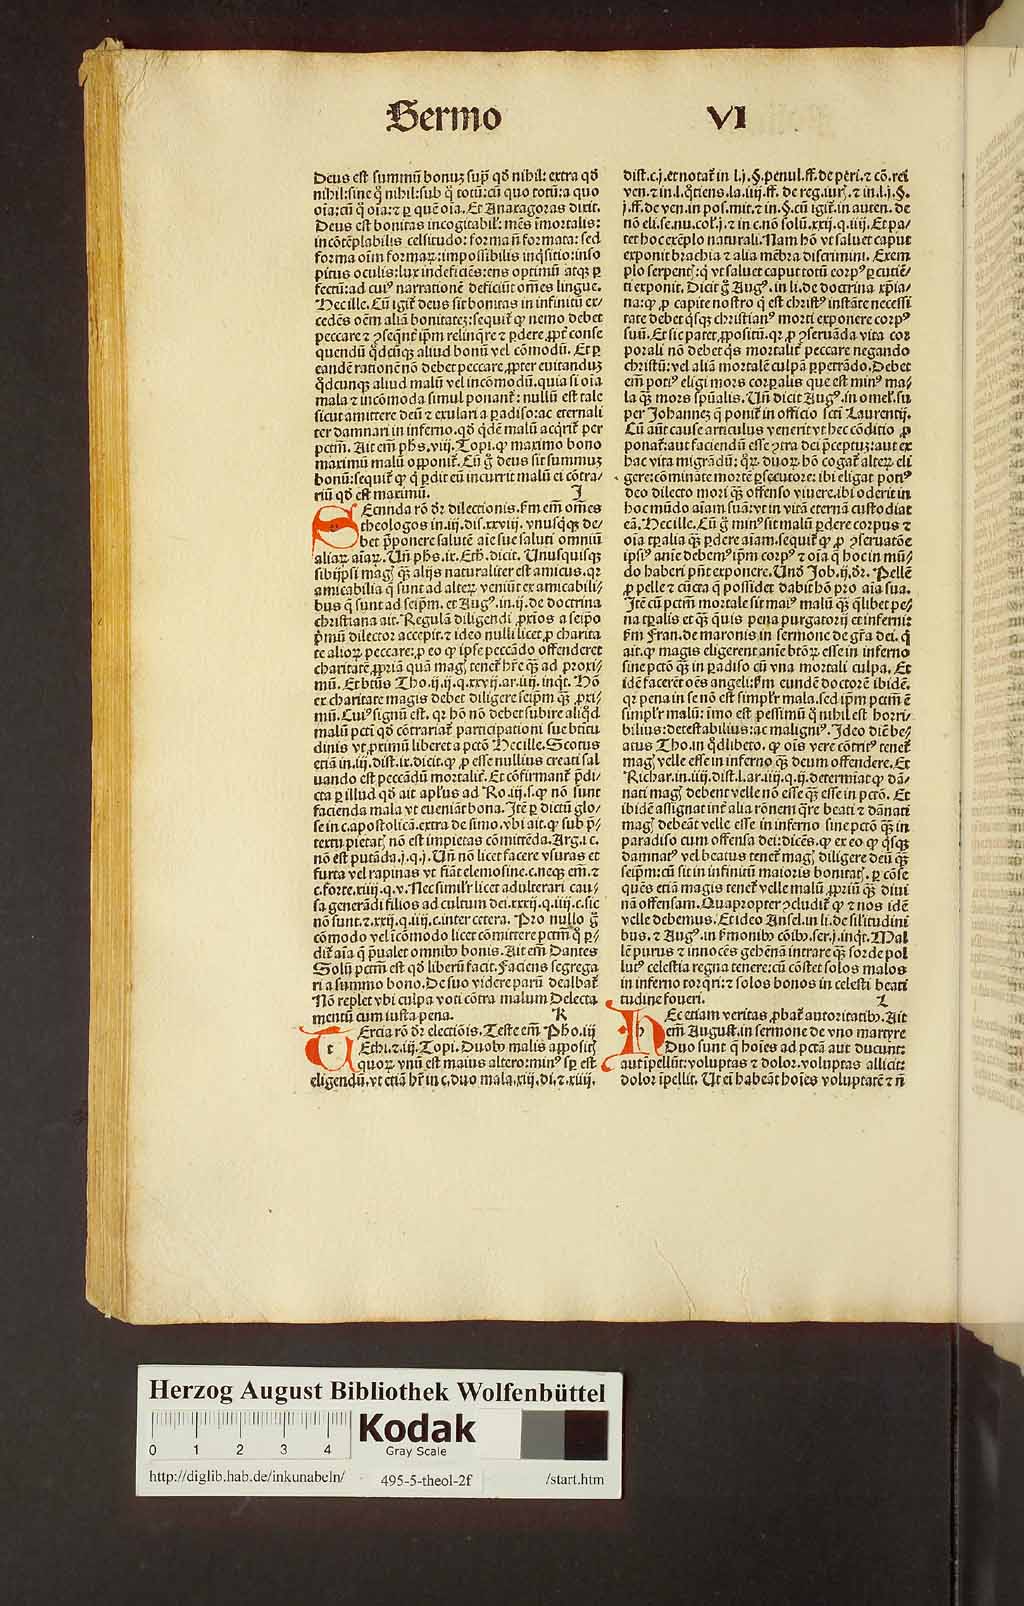 Sermo VI
Deus est summũ bonuȝ sup̃ qȭ nihil: extra qȭ
nihil: sine q̊ nihil: sub q̊ totũ: cũ quo totũ: a quo
oĩa: cũ q̊ oĩa: ⁊ ꝑ quẽ oĩa. Et Anaxagoras dixit.
Deus est bonitas incogitabilꝭ: mẽs ĩmortalis:
incõtẽplabilis celsitudo: forma nõ formata: sed
forma oĩm formaꝝ: impossibilis inq̃sitio: inso
pitus oculis: lux indeficiẽs: ens optimũ atqȝ ꝑ
fectũ: ad cuiꝰ narrationẽ deficiũt oẽs lingue.
Hec ille. Cũ igit̃ deus sit bonitas in infinitũ ex⸗
cedẽs oẽm aliã bonitateȝ: sequit̃ ꝙ nemo debet
peccare ⁊ ꝯseq̃nt̃ ip̃m relinq̃re ⁊ ꝑdere ꝓpt̃ conse
quendũ q̃dcũqȝ aliud bonũ vel cõmodũ. Et ꝑ
eandẽ rationẽ nõ debet peccare ꝓpter euitanduȝ
q̃dcunqȝ aliud malũ vel incõmodũ. quia si oĩa
mala ⁊ incõmoda simul ponant̃: nullũ est tale
sicut amittere deũ ⁊ exulari a ꝑadiso: ac eternali
ter damnari in inferno. qȭ q̃dẽ malũ acq̃rit̃ per
pctm̃. Ait em̃ ph̃s. viij. Topi. ꝙ maximo bono
maximũ malũ opponit̃. Cũ g̊ deus sit summuȝ
bonũ: sequit̃ ꝙ q̃ ꝑdit eũ incurrit malũ ei cõtra⸗
riũ qȭ est maximũ. J
SEcunda rõ ȭr dilectionis. ẜm em̃ oẽs
theologos in. iij. dis. xxviij. vnusq̃sqȝ de⸗
bet p̃ponere salutẽ aĩe sue saluti omniũ
aliaꝝ aĩaꝝ. Vñ ph̃s. ix. Eth. dicit. Unusquisqȝ
sibiip̃si magꝭ q̃ȝ alijs naturaliter est amicus. qr
amicabilia q̃ sunt ad alteꝝ veniũt ex amicabili⸗
bus q̃ sunt ad seip̃m. et Augꝰ. in. ij. de doctrina
christiana ait. Regulã diligendi ꝓxĩos a seipo
p̃mũ dilector accepit. ⁊ ideo nulli licet ꝓ charita
te alioꝝ peccare: ꝓ eo ꝙ ip̃se peccãdo offenderet
charitatẽ ꝓpriã quã magꝭ tenet̃ hr̃e q̃ȝ ad proxi⸗
mũ. Et btũs Tho. ij. ij. q. xxvij. ar. iiij. inq̃t. Hõ
ex charitate magis debet diligere seip̃m q̃ȝ ꝓxi⸗
mũ. Cuiꝰ signũ est. qr hõ nõ debet subire aliq̃d
malũ pcti qȭ cõtrariat̃ participationi sue btitu
dinis vt ꝓximũ liberet a pctõ Hec ille. Scotus
etiã in. iij. dist. ix. dicit. ꝙ ꝓ esse nullius creati sal
uando est peccãdũ mortalit̃. Et cõfirmant̃ p̃di
cta ꝑ illud qȭ ait apl̃us ad Ro. iij. s. ꝙ nõ sunt
facienda mala vt eueniãt bona. Itẽ ꝑ dictũ glo⸗
se in c. apostolicã. extra de simo. vbi ait. ꝙ sub p̃⸗
textu pietatꝭ nõ est impietas cõmittẽda. Arg. i c.
nõ est putãda. j. q. j. Vñ nõ licet facere vsuras et
furta vel rapinas vt fiãt elemosine. c. neqȝ em̃. ⁊
c. forte. xiiij. q. v. Nec simil̃r licet adulterari cau⸗
sa generãdi filios ad cultum dei. xxxij. q. iiij. c. sic
nõ sunt. ⁊. xxij. q. iiij. c. inter cetera. Pro nullo g̊
cõmodo vel ĩcõmodo licet cõmittere pctm̃ q̊ ꝑ⸗
dit̃ aĩa q̃ p̃ualet omnibꝰ bonis. Ait em̃ Dantes
Solũ pctm̃ est qȭ liberũ facit. Faciens segrega
ri a summo bono. De suo videre parũ dealbat̃
Nõ replet vbi culpa voti cõtra malum Delecta
mentũ cum iusta pena. K
TErcia rõ ȭr electiõis. Teste em̃ Pho. iij
Ethi. ⁊. iij. Topi. Duobꝰ malis appositꝭ
quoꝝ vnũ est maius altero: minꝰ sp̃ est
eligendũ. vt etiã hr̃ in c. duo mala. xiij. di. ⁊. xiiij.
dist. c. j. et notat̃ in l. j. §. penul. ff. de peri. ⁊ cõ. rei
ven. ⁊ in. l. q̃tiens. la. iiij. ff. de reg. iurꝭ. ⁊ in. l. j. §.
j. ff. de ven. in pos. mit. ⁊ in. §. cũ igit̃. in auten. de
nõ eli. se. nu. col̃. j. ⁊ in c. nõ solũ. xxij. q. iiij. Et pa⸗
tet hoc exẽplo naturali. Nam hõ vt saluet caput
exponit brachia ⁊ alia mẽbra discrimini. Exem
plo serpentꝭ: q̃ vt saluet caput totũ corpꝰ ꝑcutiẽ⸗
ti exponit. Dicit g̊ Augꝰ. in li. de doctrina xp̃ia⸗
na: ꝙ ꝓ capite nostro q̃ est christꝰ instãte necessi
tate debet q̃sqȝ christianꝰ morti exponere corpꝰ
suũ. Et sic patet ꝓpositũ. qr ꝓ ꝯseruãda vita cor
porali nõ debet q̃s mortalit̃ peccare negando
christũ: vel aliã mortalẽ culpã ꝑpetrãdo. Debet
em̃ potiꝰ eligi mors corꝑalis que est minꝰ ma⸗
la q̃ȝ mors sp̃ualis. Vñ dicit Augꝰ. in omel̃. su
per Johanneȝ q̃ ponit̃ in officio scti Laurentij.
Cũ aũt cause articulus venerit vt hec cõditio ꝓ
ponat̃: aut faciendũ esse ꝯtra dei p̃ceptuȝ: aut ex
hac vita migrãdũ: q̃ꝝ duoꝝ hõ cogat̃ alteꝝ eli
gere: cõminãte mortẽ ꝑsecutore: ibi eligat potiꝰ
deo dilecto mori q̃ȝ offenso viuere. ibi oderit in
hoc mũdo aĩam suã: vt in vitã eternã custodiat
eã. Hec ille. Cũ g̊ minꝰ sit malũ ꝑdere corpus ⁊
oĩa tꝑalia q̃ȝ ꝑdere aĩam. sequit̃ ꝙ ꝓ ꝯseruatõe
ipsiꝰ anie debemꝰ ip̃m corpꝰ ⁊ oĩa q̃ hoc in mũ⸗
do haberi pñt exponere. Unȭ Job. ij. ȭr. Pellẽ
ꝓ pelle ⁊ cũcta q̃ possidet dabit hõ pro aĩa sua.
Itẽ cũ pctm̃ mortale sit maiꝰ malũ q̃ȝ q̃libet pe⸗
na tꝑalis et q̃ȝ q̃uis pena purgatorij et inferni:
ẜm Fran. de maronis in sermone de gr̃a dei. q̃
ait. ꝙ magis eligerent anie btõꝝ esse in inferno
sine pctõ q̃ȝ in ꝑadiso cũ vna mortali culpa. Et
idẽ facerẽt oẽs angeli: ẜm eundẽ doctorẽ ibidẽ.
qr pena in se nõ est simpl̃r mala. sed ip̃m pctm̃ ẽ
simpl̃r malũ: imo est pessimũ q̊ nihil est horri⸗
bilius: detestabilius: ac malignĩꝰ. Ideo diẽ be⸗
atus Tho. in q̃dlibeto. ꝙ oĩs vere cõtritꝰ tenet̃
magꝭ velle esse in inferno q̃ȝ deum offendere. Et
Richar. in. iiij. dist. l. ar. iiij. q. ij. determĩat ꝙ dã⸗
nati magꝭ debent velle nõ esse q̃ȝ esse in pctõ. Et
ibidẽ assignat int̃ alia rõnem q̃re beati ⁊ dãnati
magꝭ debeãt velle esse in inferno sine pctõ q̃ȝ in
paradiso cum offensa dei: dicẽs. ꝙ ex eo ꝙ q̃sqȝ
damnatꝰ vel beatus tenet̃ magꝭ diligere deũ q̃ȝ
seip̃m: cũ sit in infinitũ maioris bonitatꝭ. ꝑ cõse
quẽs etiã magis tenet̃ velle malũ ꝓpriũ q̃ȝ diui
nã offensam. Quapropter ꝯcludit̃ ꝙ ⁊ nos idẽ
velle debemus. Et ideo Ansel. in li. de sil̃itudini
bus. ⁊ Augꝰ. in ẜmonibꝰ cõibꝰ. ser. j. inq̃t. Mal
lẽ purus ⁊ innocẽs gehẽnã intrare q̃ȝ sorde pol
lutꝰ celestia regna tenere: cũ cõstet solos malos
in inferno torq̃ri: ⁊ solos bonos in celesti beati
tudine foueri. L
HEc etiam veritas ꝓbat̃ autoritatibꝰ. Ait
em̃ August. in sermone de vno martyre
Duo sunt q̃ hoĩes ad pctã aut ducunt:
aut ĩpellũt: voluptas ⁊ dolor. voluptas allicit:
dolor ĩpellit. Ut ei habeãt hoĩes voluptatẽ ⁊ ñ
Herzog August Bibliothek Wolfenbüttel
0 1 2 3 4
Kodak
Gray Scale
http://diglib.hab.de/inkunabeln/ 495-5-theol-2f /start.htm